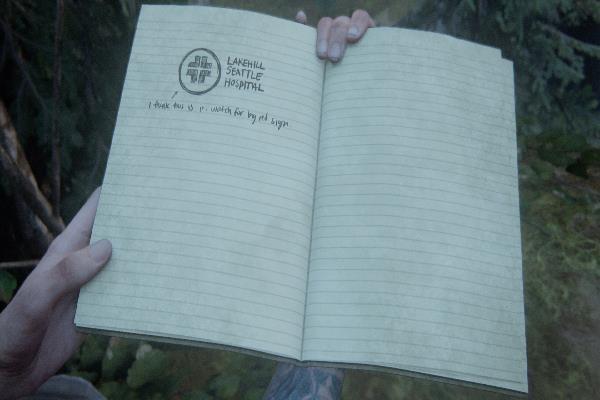 LAKEHILL
SEATTLE
HOSPITAL
I think this is it. watch for big red sign.